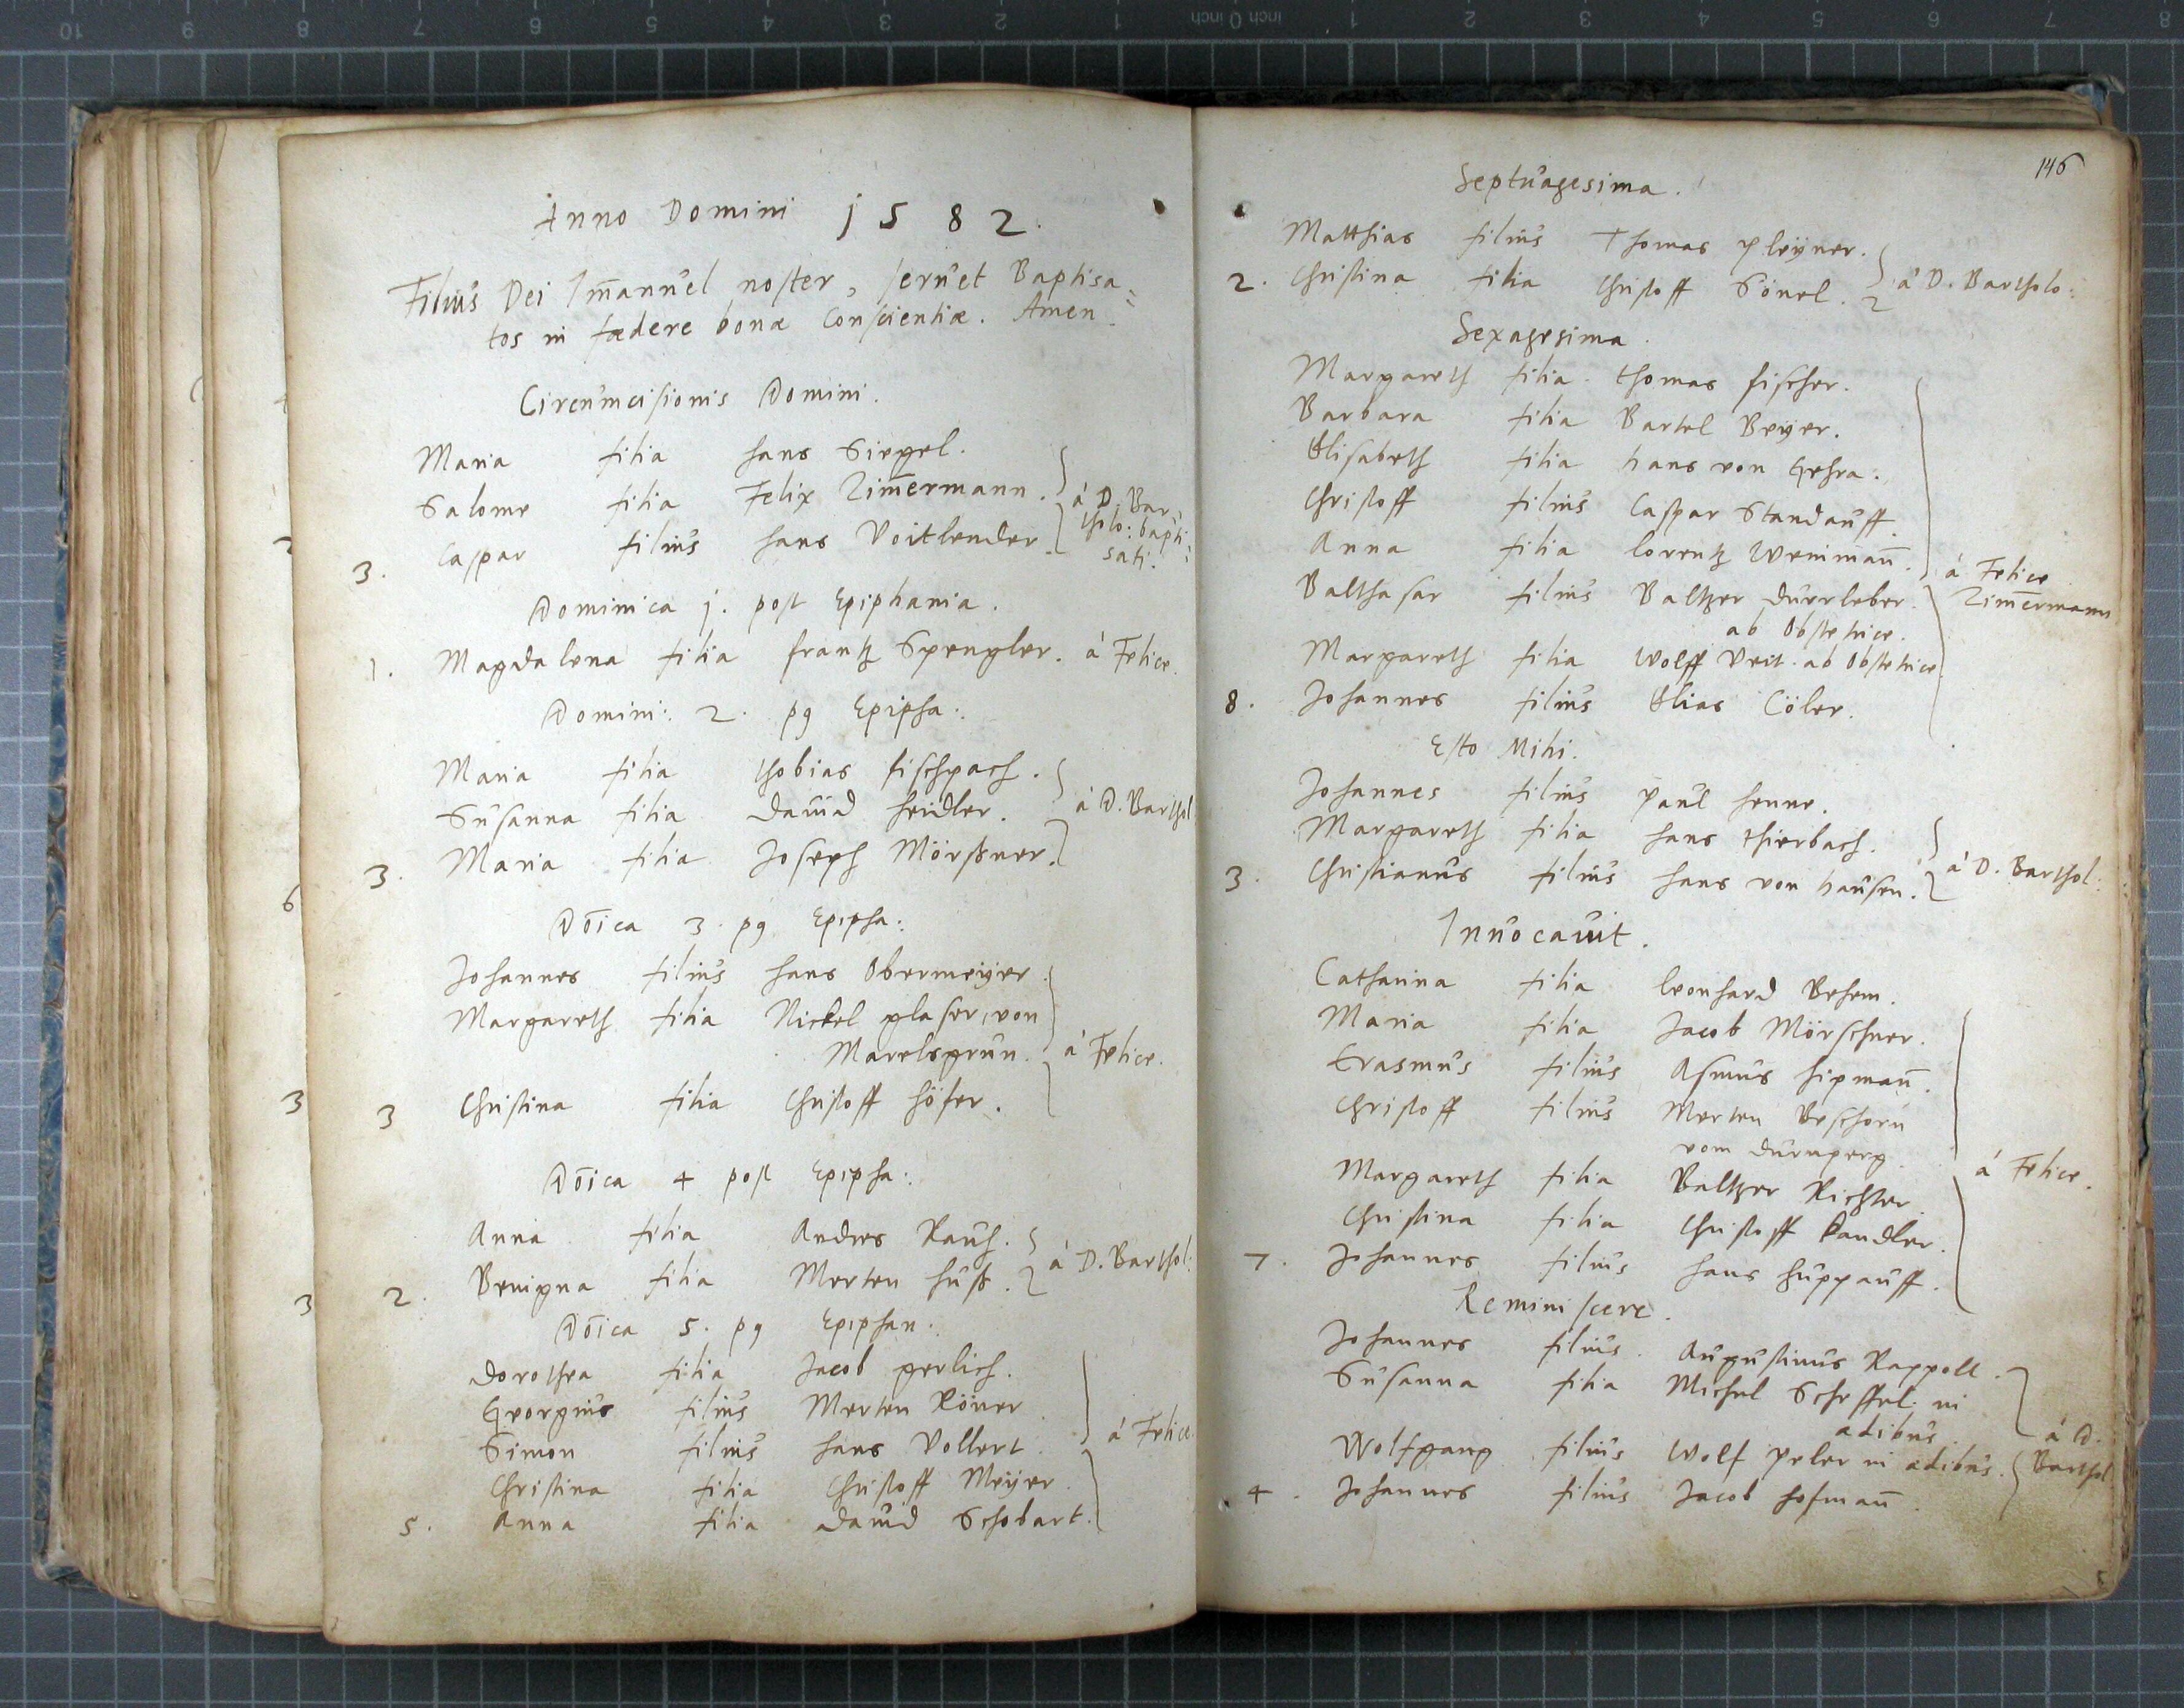 Anno Domini 1582.
Filius Dei Im̃anuel noster, seruet Baptisa=
tos in fœdere bonæ Conscientiæ. Amen.
Circumcisionis Domini.
Maria filia Hans Siegel.
Salome filia Felix Zim̃ermann.
3. Caspar filius Hans Voitlender.
à D. Bar=
tholo: bapti=
sati.
Dominica 1. post Epiphania.
1. Magdalena filia Frantz Spengler. à Felice.
Domini: 2. pg Epipha:
Maria filia Thobias Fischpach.
Susanna filia Dauid Heidler.
3. Maria filia Joseph Mörßner.
à D. Barthol
Dõica 3. pg Epipha:
Johannes filius Hans Obermeÿer.
Margareth filia Nickel glaser, von
Marelsgrun.
3 Christina filia Christoff Höfer.
à Felice.
Dõica 4 post Epipha:
Anna filia Andres Rauh.
2. Benigna filia Merten Huß.
à D. Barthol:
Dõica 5. pg Epiphan.
Dorothea filia Jacob gerlich.
Georgius filius Merten Röner
Simon filius Hans Vollert.
Christina filia Christoff Meÿer.
5. Anna filia Dauid Schobart.
à Felice
146
Septuagesima.
Matthias filius Thomas Pleÿner.
2. Christina filia Christoff Sönel.
à D. Bartholo:
Sexagesima.
Margareth filia Thomas Fischer.
Barbara filia Bartel Beÿer.
Elisabeth filia Hans von Gehra.
Christoff filius Caspar Standauff.
Anna filia Lorentz Weinmañ.
Balthasar filius Baltzer Durrleber.
ab Obstetrice.
Margareth filia Wolff Veit. ab Obstetrice
8. Johannes filius Elias Cöler.
à Felice
Zim̃ermann
Esto Mihi.
Johannes filius Paul Henne.
Margareth filia Hans Thierbach.
3. Christianus filius Hans von Hausen.
à D. Barthol:
Inuocauit.
Catharina filia Leonhard Behem.
Maria filia Jacob Mörschner.
Erasmus filius Asmus Hipmañ.
Christoff filius Merten Beschorn
vom Durnperg
Margareth filia Baltzer Richter.
Christina filia Christoff Kandler.
7. Johannes filius Hans Huppauff.
à Felice.
Reminiscere.
Johannes filius Augustinus Rappolt.
Susanna filia Michel Scheffel. in
ædibus.
Wolfgang filius Wolf Peler in ædibus.
4. Johannes filius Jacob Hofmañ.
à D.
Barthol